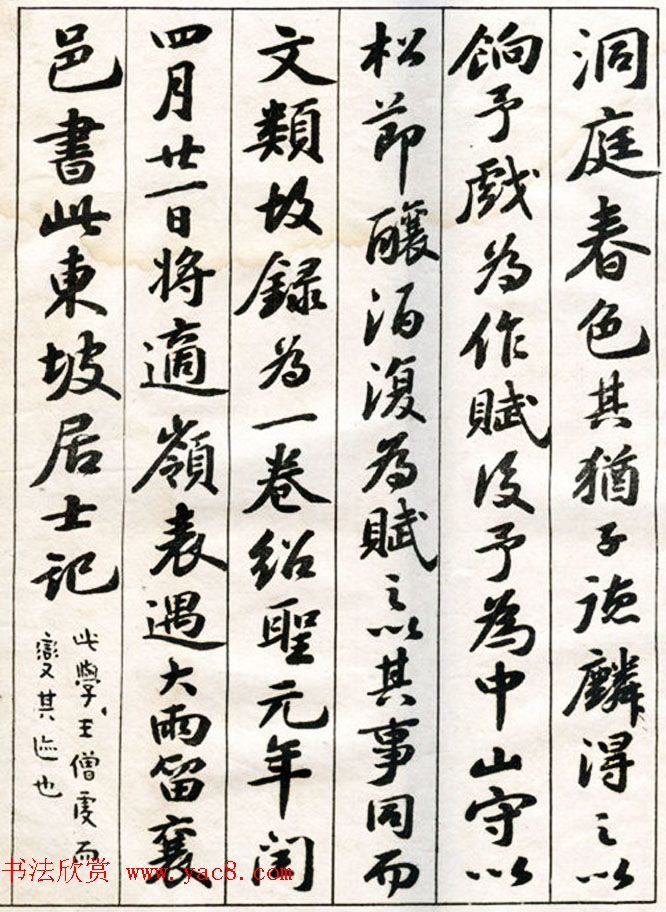 洞庭春色其猶子德麟得之以
餉予戲為作賦後予為中山守以
松節釀酒復為賦之以其事同而
文類故錄為一卷紹聖元年閏
四月廿一日將適嶺表遇大雨留襄
邑書此東坡居士記
此學王僧虔而
變其迹也
书法欣赏 www.yac8.com